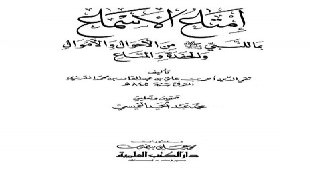 إمتاع الأسماع
بما للنبي ﷺ من الأحوال والأموال
والحفدة والمتاع
تأليف
تقي الدين أحمد بن علي بن عبد القادر بن محمد المقريزي
المتوفى سنة ٨٤٥ هـ
تحقيق وتعليق
محمد عبد الحميد النميسي
محمد علي بيضون
دار الكتب العلمية